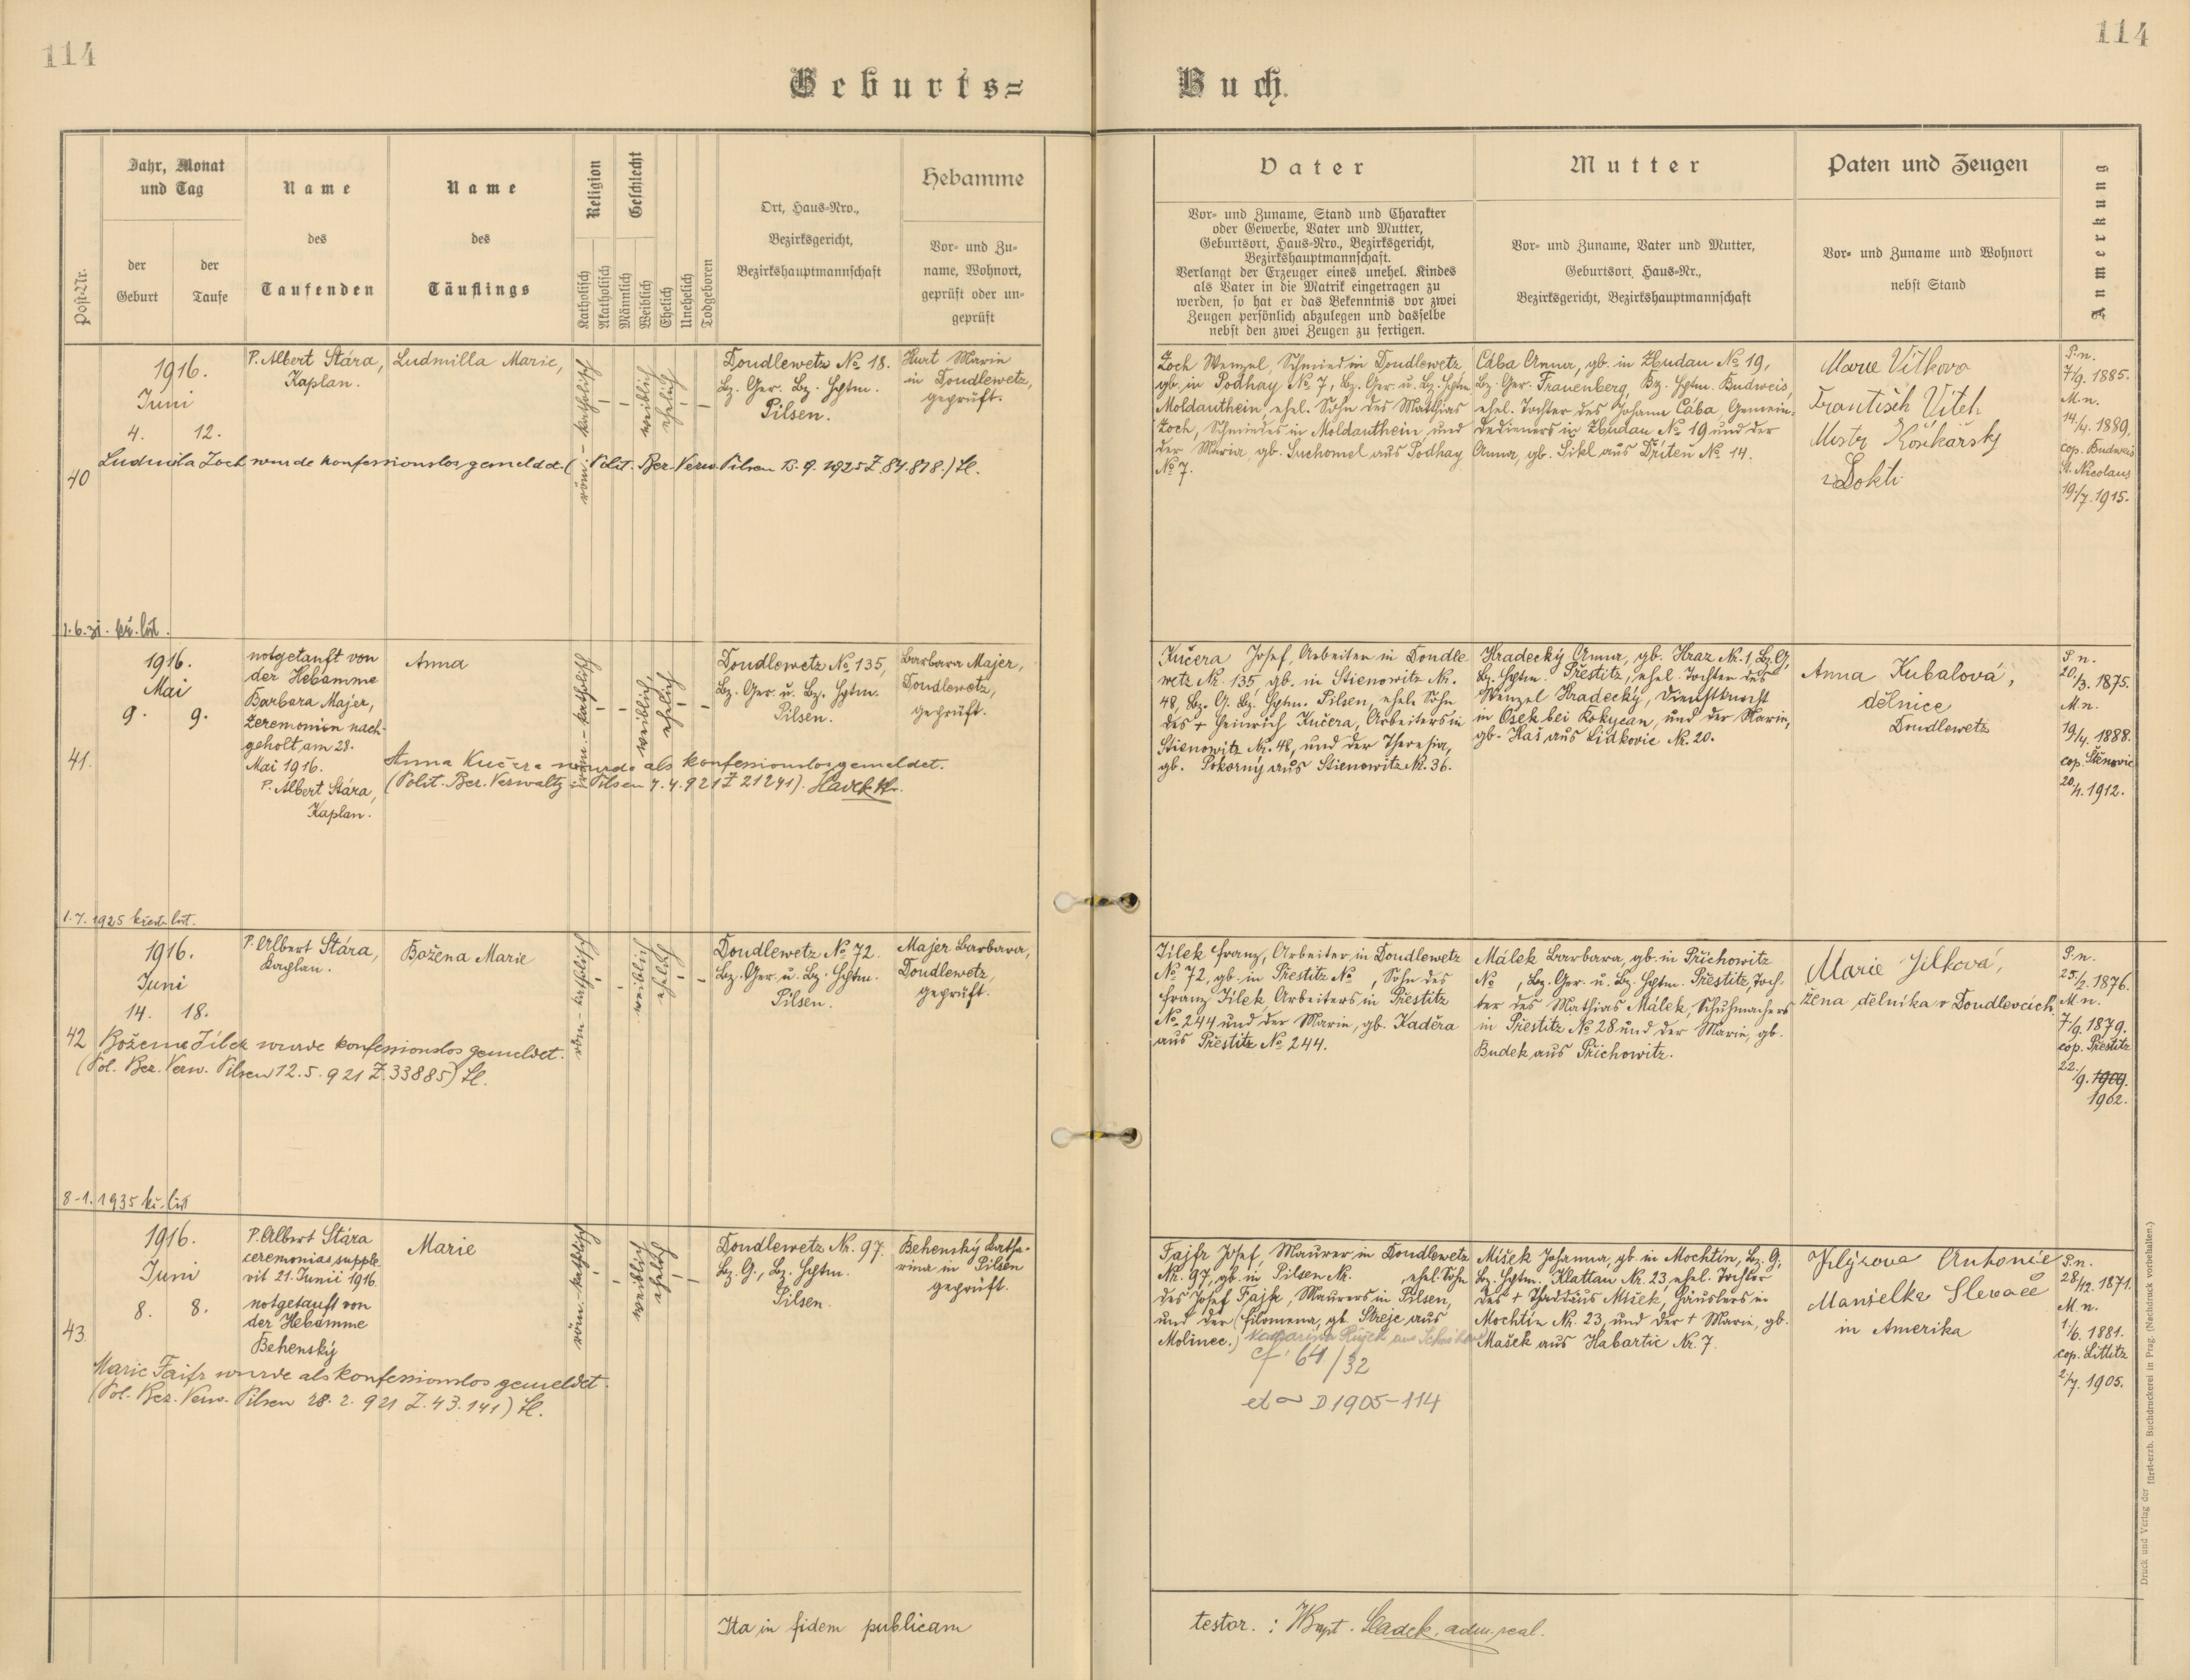 114
114
Geburts=
Buch.
Post-Nr.
Jahr, Monat
und Tag
der
Geburt
der
Taufe
Name
des
Taufenden
Name
des
Täuflings
Religion
Katholisch
Akatholisch
Geschlecht
Männlich
Weiblich
Ehelich
Unehelich
Todgeboren
Ort, Haus=Nro.,
Bezirksgericht,
Bezirkshauptmannschaft
Hebamme
Vor= und Zu=
name, Wohnort,
geprüft oder un=
geprüft
Vater
Vor= und Zuname, Stand und Charakter
oder Gewerbe, Vater und Mutter,
Geburtsort, Haus=Nro., Bezirksgericht,
Bezirkshauptmannschaft.
Verlangt der Erzeuger eines unehel. Kindes
als Vater in die Matrik eingetragen zu
werden, so hat er das Bekenntnis vor zwei
Zeugen persönlich abzulegen und dasselbe
nebst den zwei Zeugen zu fertigen.
Mutter
Vor= und Zuname, Vater und Mutter,
Geburtsort, Haus=Nr.,
Bezirksgericht, Bezirkshauptmannschaft
Paten und Zeugen
Vor= und Zuname und Wohnort
nebst Stand
Anmerkung
40
1916.
Juni
4. 12.
P. Albert Stára,
Kaplan.
Ludmilla Marie,
röm.-katholisch
weiblich
ehelich
Doudlewetz No 18.
Bz. Ger. Bz. Hptm.
Pilsen.
Hurt Marie
in Doudlewetz,
geprüft.
Ludmila Zoch wurde konfessionslos gemeldet (Polit. Bez. Verw. Pilsen 15. 9. 1925 Z. 84.818.) Sl.
Zoch Wenzel, Schmied in Doudlewetz,
gb. in Podhay No 7, Bz. Ger. u. Bz. Hptm.
Moldauthein, ehel. Sohn des Matthias
Zoch, Schmiedes in Moldauthein und
der Maria, gb. Suchomel aus Podhay
No 7.
Cába Anna, gb. in Zbudau No 19,
Bz. Ger. Frauenberg, Bz. Hptm. Budweis,
ehel. Tochter des Johann Cába, Gemein-
dedieners in Zbudau No 19 und der
Anna, gb. Sikl aus Dříten No 14.
Marie Vitkova
František Vitek
Mistr Košikářsky
z Dokti
P. n.
7/9. 1885.
M. n.
14/4. 1889.
cop. Budweis
St. Nicolaus
19/7. 1915.
1. 6. 31. kř. list.
41.
1916.
Mai
9. 9.
notgetauft von
der Hebamme
Barbara Majer,
Zeremonien nach-
geholt am 28.
Mai 1916.
P. Albert Stára,
Kaplan.
Anna
röm.-katholisch
weiblich,
ehelich
Doudlewetz No 135,
Bz. Ger. u. Bz. Hptm.
Pilsen.
Barbara Majer,
Doudlewetz,
geprüft.
Anna Kučera wurde als konfessionslos gemeldet.
(Polit. Bez. Verwaltg in Pilsen 7. 4. 921 Z 21241).
Kučera Josef, Arbeiter in Doudle
wetz Nr. 135, gb. in Stienowitz Nr.
48, Bz. G. Bz. Hptm. Pilsen, ehel. Sohn
des + Heinrich Kučera, Arbeiters in
Stienowitz Nr. 48, und der Theresia,
gb. Pokorný aus Stienowitz Nr. 36.
Hradecký Anna, gb. Hraz Nr. 1, Bz. G,
Bz. Hptm. Přestitz, ehel. Tochter des
Wenzel Hradecký, Dienstknecht
in Osek bei Rokycan, und der Marie,
gb. Haš aus Lidkovic Nr. 20.
Anna Kubalová,
dělnice
Doudlewetz
P. n.
20./3. 1875.
M. n.
19/4. 1888.
cop. Štěnovic
20./4. 1912.
1. 7. 1925 křest. list.
42
1916.
Juni
14. 18.
P. Albert Stára,
Kaplan.
Božena Marie
röm.-katholisch
weiblich
ehelich
Doudlewetz No 72.
Bz. Ger. u. Bz. Hptm.
Pilsen.
Majer Barbara,
Doudlewetz,
geprüft.
Božena Jílek wurde konfessionslos gemeldet.
(Pol. Bez. Verw. Pilsen 12. 5. 921 Z. 33885) Sl.
Jílek Franz, Arbeiter in Doudlewetz
No 72, gb. in Přestitz No , Sohn des
Franz Jílek, Arbeiters in Přestitz
No 244 und der Marie, gb. Kaděra
aus Přestitz No 244.
Málek Barbara, gb. in Přichowitz
No , Bz. Ger. u. Bz. Hptm. Přestitz, Toch-
ter des Mathias Málek, Schuhmachers
in Přestitz No 28 und der Marie, gb.
Budek aus Přichowitz.
Marie Jílková,
žena dělníka v Doudlevcích
P. n.
25./2. 1876.
M. n.
7./9. 1879.
cop. Přestitz
22./9. 1909.
1902.
8-1. 1935 kř. list
43
1916.
Juni
8. 8.
P. Albert Stára
ceremonias supple
vit 21. Junii 1916.
notgetauft von
der Hebamme
Behenský
Marie
röm.-katholisch
weiblich
ehelich
Doudlewetz Nr. 97.
Bz. G., Bz. Hptm.
Pilsen.
Behenský Katha-
rina in Pilsen
geprüft.
Marie Faifr wurde als konfessionslos gemeldet.
(Pol. Bez. Verw. Pilsen 28. 2. 921 Z. 43.141) Sl.
Fajfr Josef, Maurer in Doudlewetz
Nr. 97, gb. in Pilsen Nr. , ehel. Sohn
des Josef Fajfr, Maurers in Pilsen,
und der (Filomena, gb. Streje aus
Molinec.) Katharina
cf. 64/32
et D 1905-114
Mišek Johanna, gb. in Mochtin, Bz. G,
Bz. Hptm. Klattau Nr. 23, ehel. Tochter
des + Thaddäus Mišek, Häuslers in
Mochtin Nr. 23, und der + Marie, gb.
Mašek aus Habartic Nr. 7.
Antonie
Manželka
in Amerika
P. n.
28./12. 1871.
M. n.
1./6. 1881.
cop. Littitz
2/7. 1905.
Ita in fidem publicam
testor. : Sladek, adm.
Druck und Verlag der fürst-erzb. Buchdruckerei in Prag. (Nachdruck vorbehalten.)